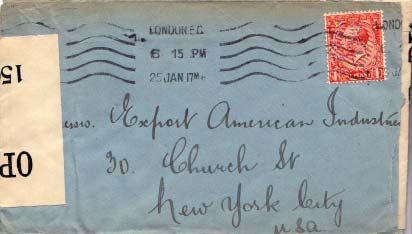 LONDON. E.C.
6 15 PM
25 JAN 17
15
OP
Export American Industries
30. Church St
New York City
USA